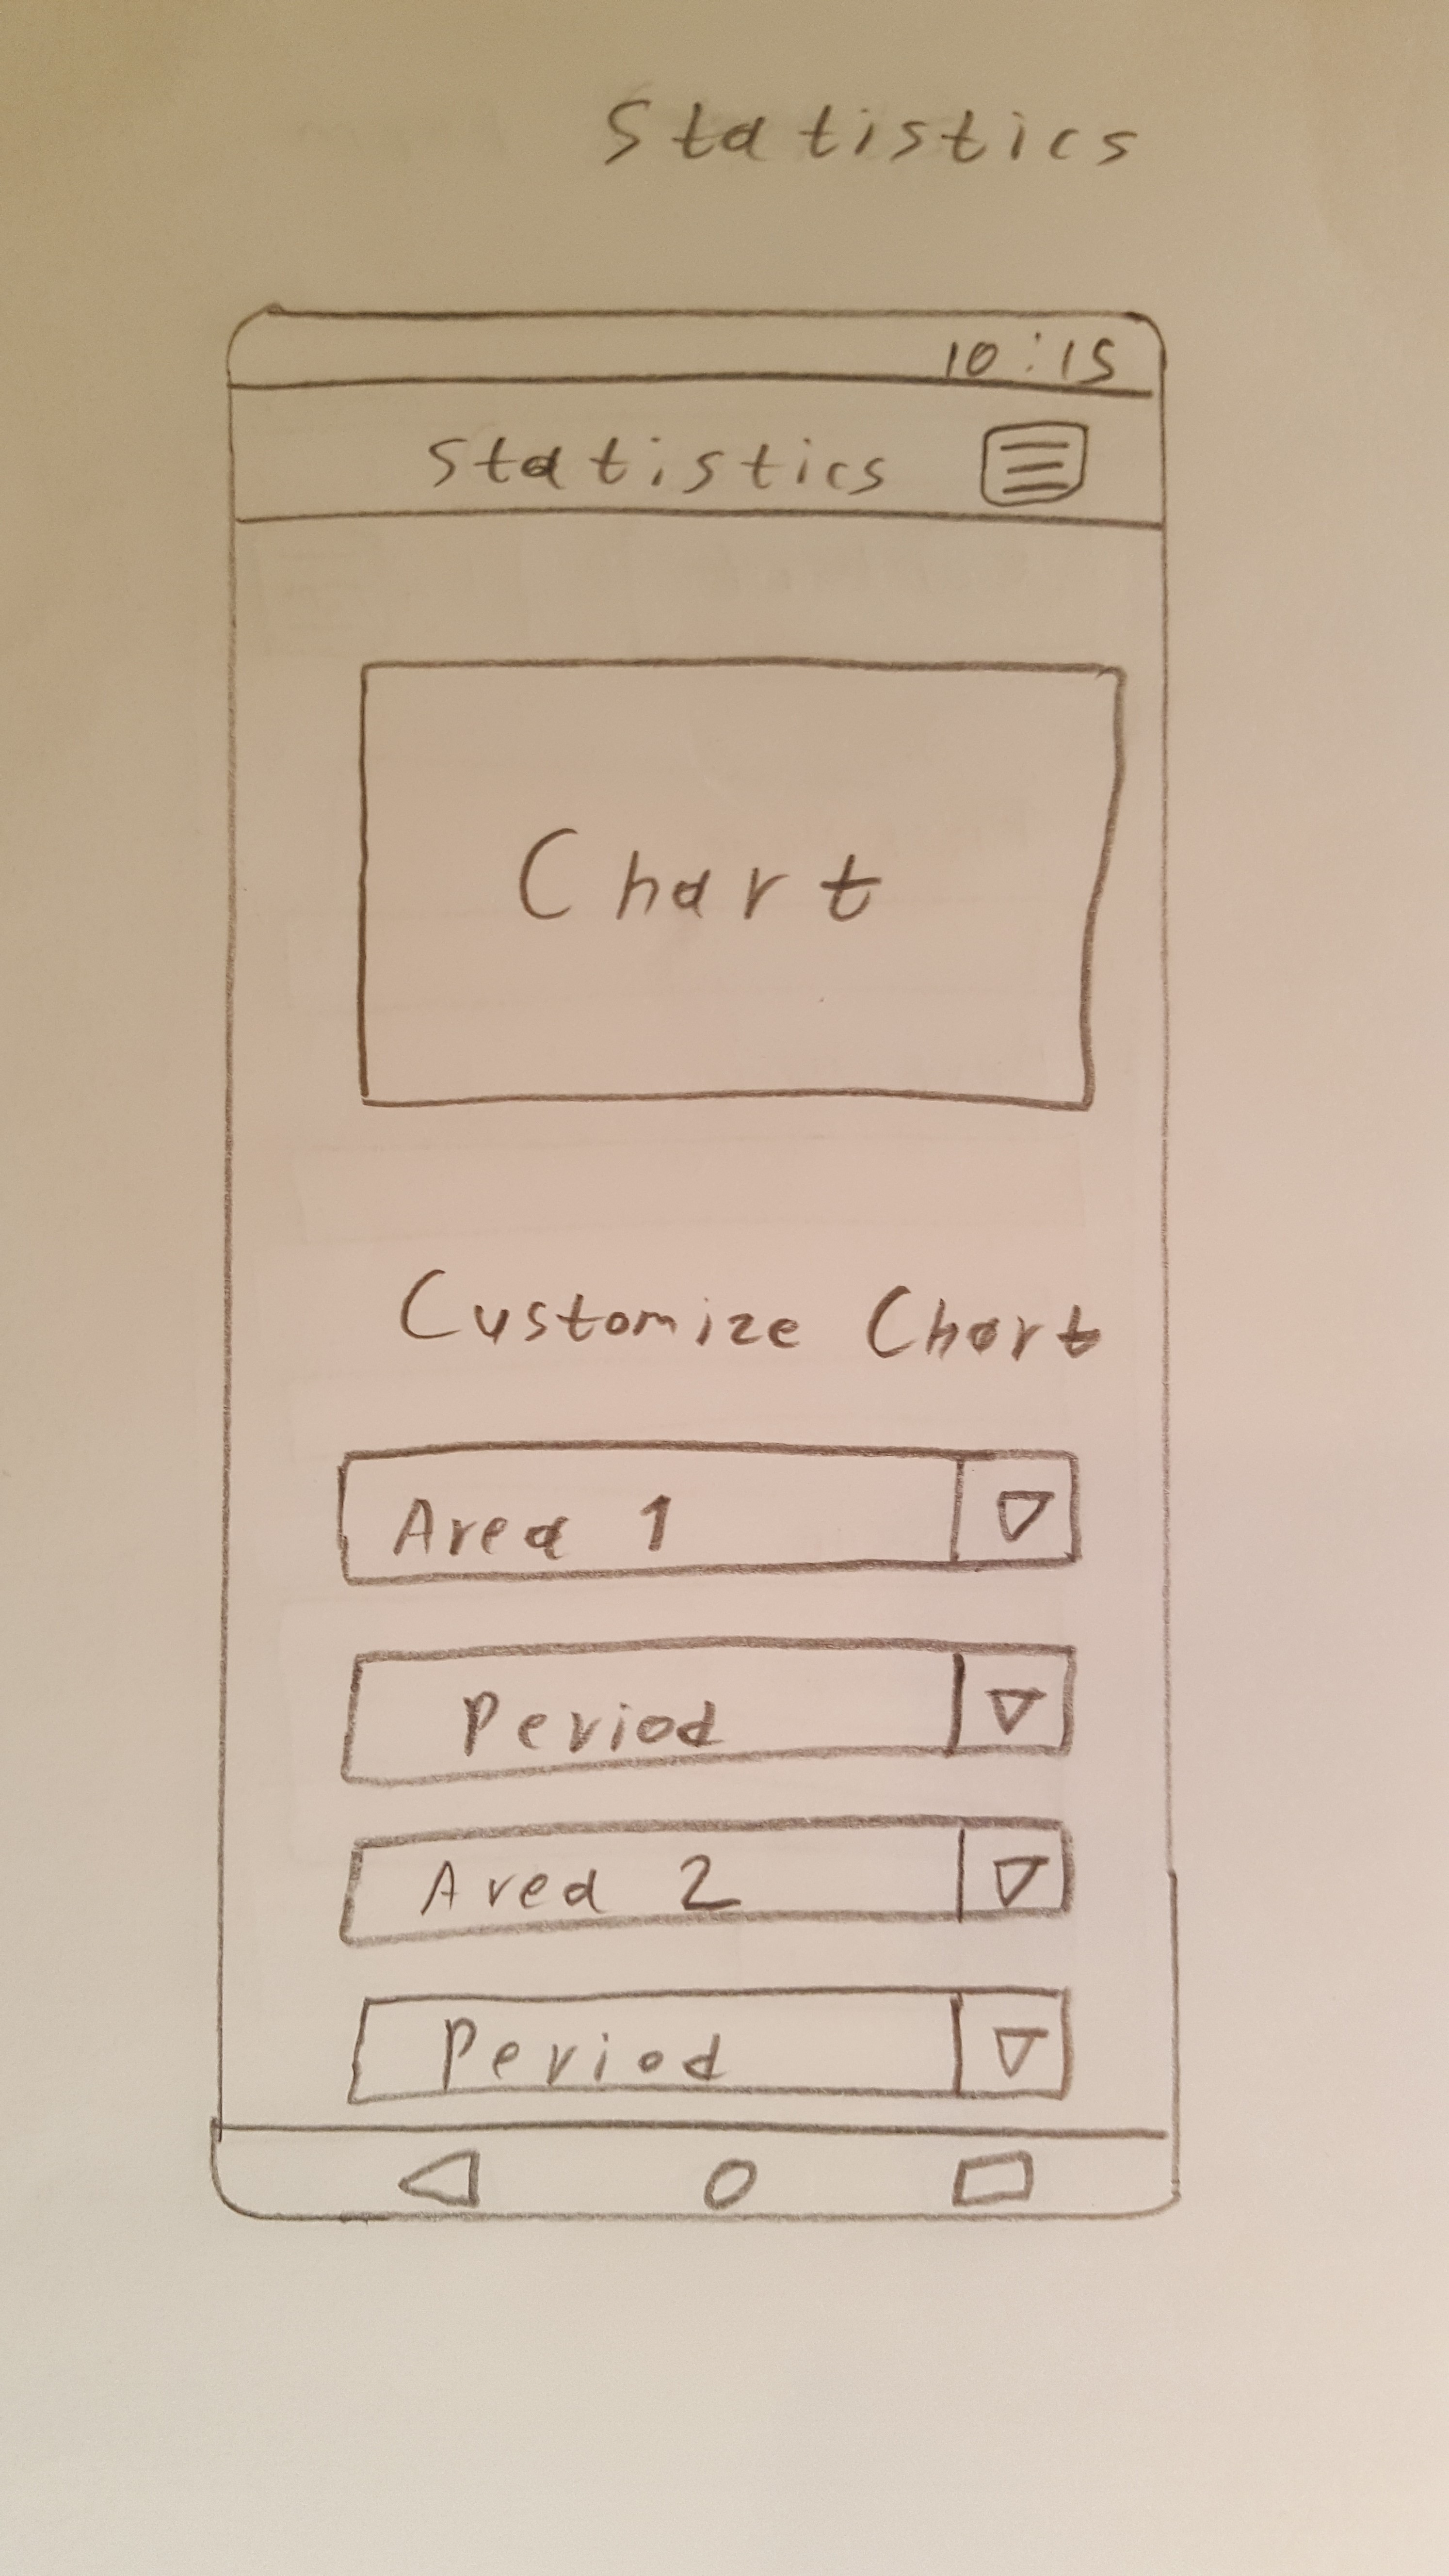 Statistics
10:15
Statistics
Chart
Customize Chart
Area 1
Period
Area 2
Period